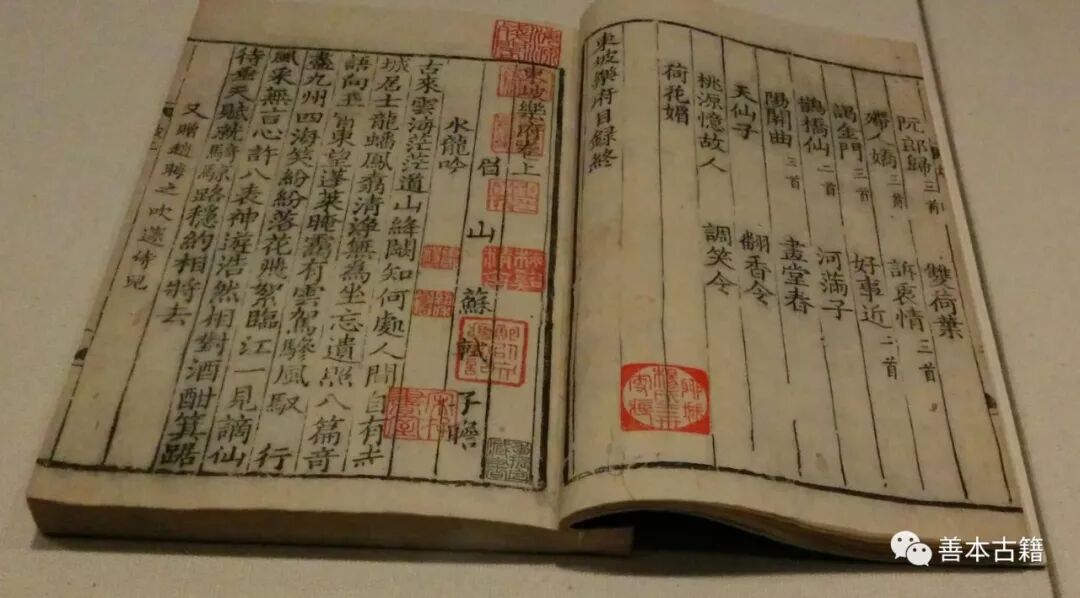 阮郎歸 三首 雙荷葉
殢人嬌 三首 訴衷情 三首
謁金門 三首 好事近 二首
鵲橋仙 二首 河滿子
陽關曲 三首 畫堂春
天仙子 翻香令
桃源憶故人 調笑令
荷花媚
東坡樂府目錄終
東坡樂府卷上
眉山 蘇軾 子瞻
水龍吟
古來雲海茫茫道山絳闕知何處人間自有赤
城居士龍蟠鳳翥清淨無為坐忘遺照八篇奇
語向玉霄東望蓬萊晻靄有雲駕驂風馭 行
盡九州四海笑紛紛落花飛絮臨江一見謫仙
風采無言心許八表神游浩然相對酒酣箕踞
待垂天賦就騎鯨路穩約相將去
又贈趙晦之吹笛侍兒
善本古籍